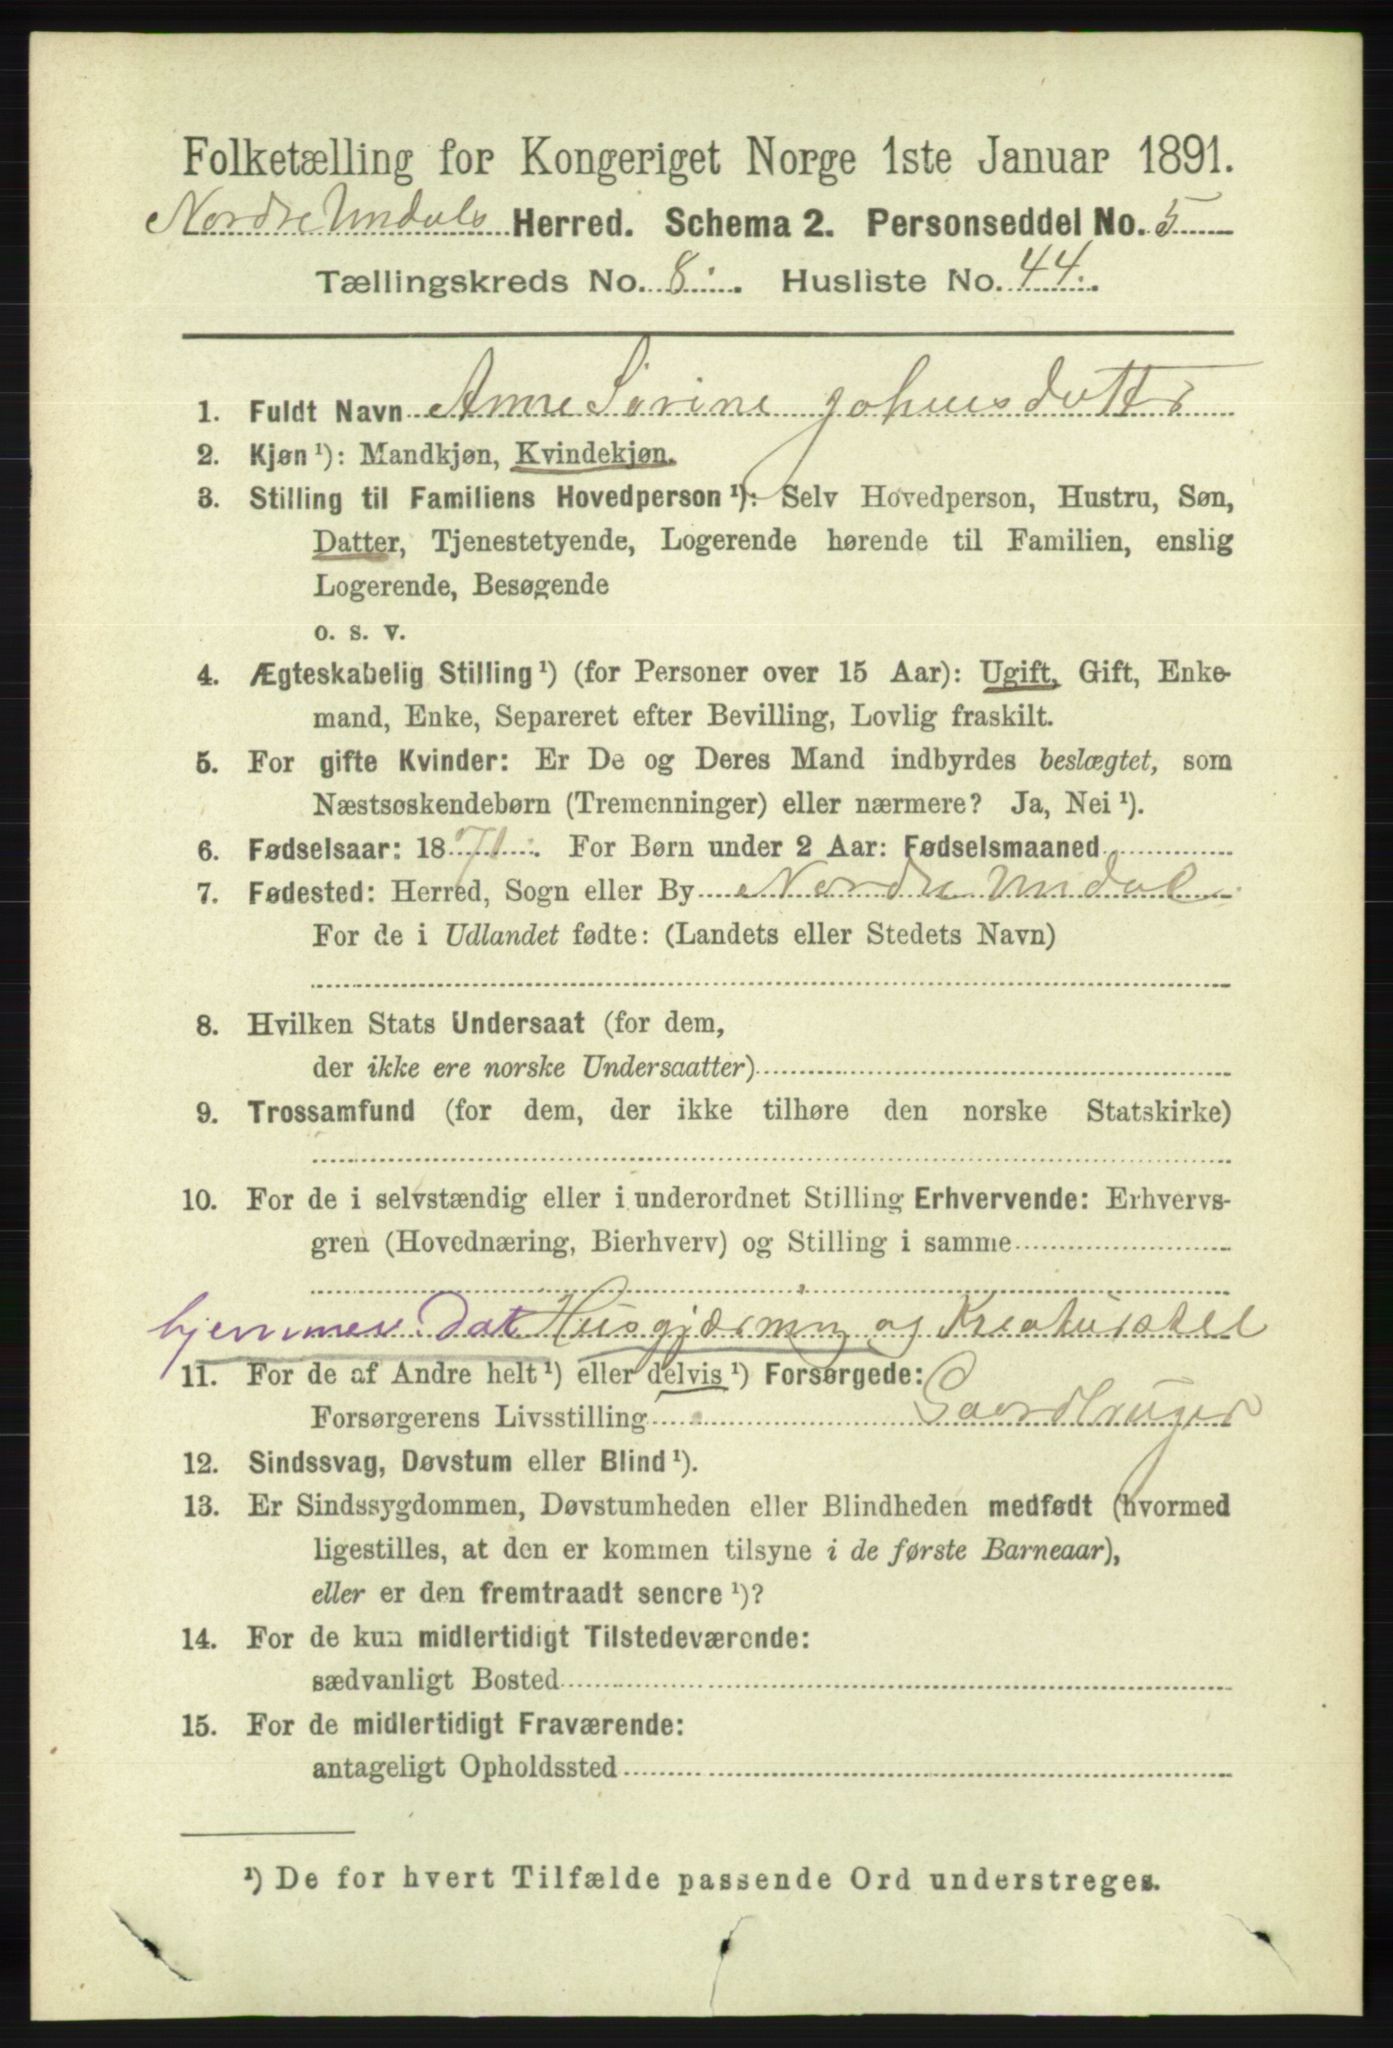 Folketælling for Kongeriget Norge 1ste Januar 1891.
Nordre Undals Herred. Schema 2. Personseddel No. 5
Tællingskreds No. 8. Husliste No. 44.
1. Fuldt Navn Anne Sörine Johnsdatter
2. Kjøn ¹): Mandkjøn, Kvindekjøn.
3. Stilling til Familiens Hovedperson ¹): Selv Hovedperson, Hustru, Søn,
Datter, Tjenestetyende, Logerende hørende til Familien, enslig
Logerende, Besøgende
o. s. v.
4. Ægteskabelig Stilling ¹) (for Personer over 15 Aar): Ugift, Gift, Enke-
mand, Enke, Separeret efter Bevilling, Lovlig fraskilt.
5. For gifte Kvinder: Er De og Deres Mand indbyrdes beslægtet, som
Næstsøskendebørn (Tremenninger) eller nærmere? Ja, Nei ¹).
6. Fødselsaar: 1871. For Børn under 2 Aar: Fødselsmaaned
7. Fødested: Herred, Sogn eller By Nordre Undal
For de i Udlandet fødte: (Landets eller Stedets Navn)
8. Hvilken Stats Undersaat (for dem,
der ikke ere norske Undersaatter)
9. Trossamfund (for dem, der ikke tilhøre den norske Statskirke)
10. For de i selvstændig eller i underordnet Stilling Erhvervende: Erhvervs-
gren (Hovednæring, Bierhverv) og Stilling i samme
hjemmev. Dat Husgjærning og Kreaturstel
11. For de af Andre helt ¹) eller delvis ¹) Forsørgede:
Forsørgerens Livsstilling Gaardbruger
12. Sindssvag, Døvstum eller Blind ¹).
13. Er Sindssygdommen, Døvstumheden eller Blindheden medfødt (hvormed
ligestilles, at den er kommen tilsyne i de første Barneaar),
eller er den fremtraadt senere ¹)?
14. For de kun midlertidigt Tilstedeværende:
sædvanligt Bosted
15. For de midlertidigt Fraværende:
antageligt Opholdssted
¹) De for hvert Tilfælde passende Ord understreges.